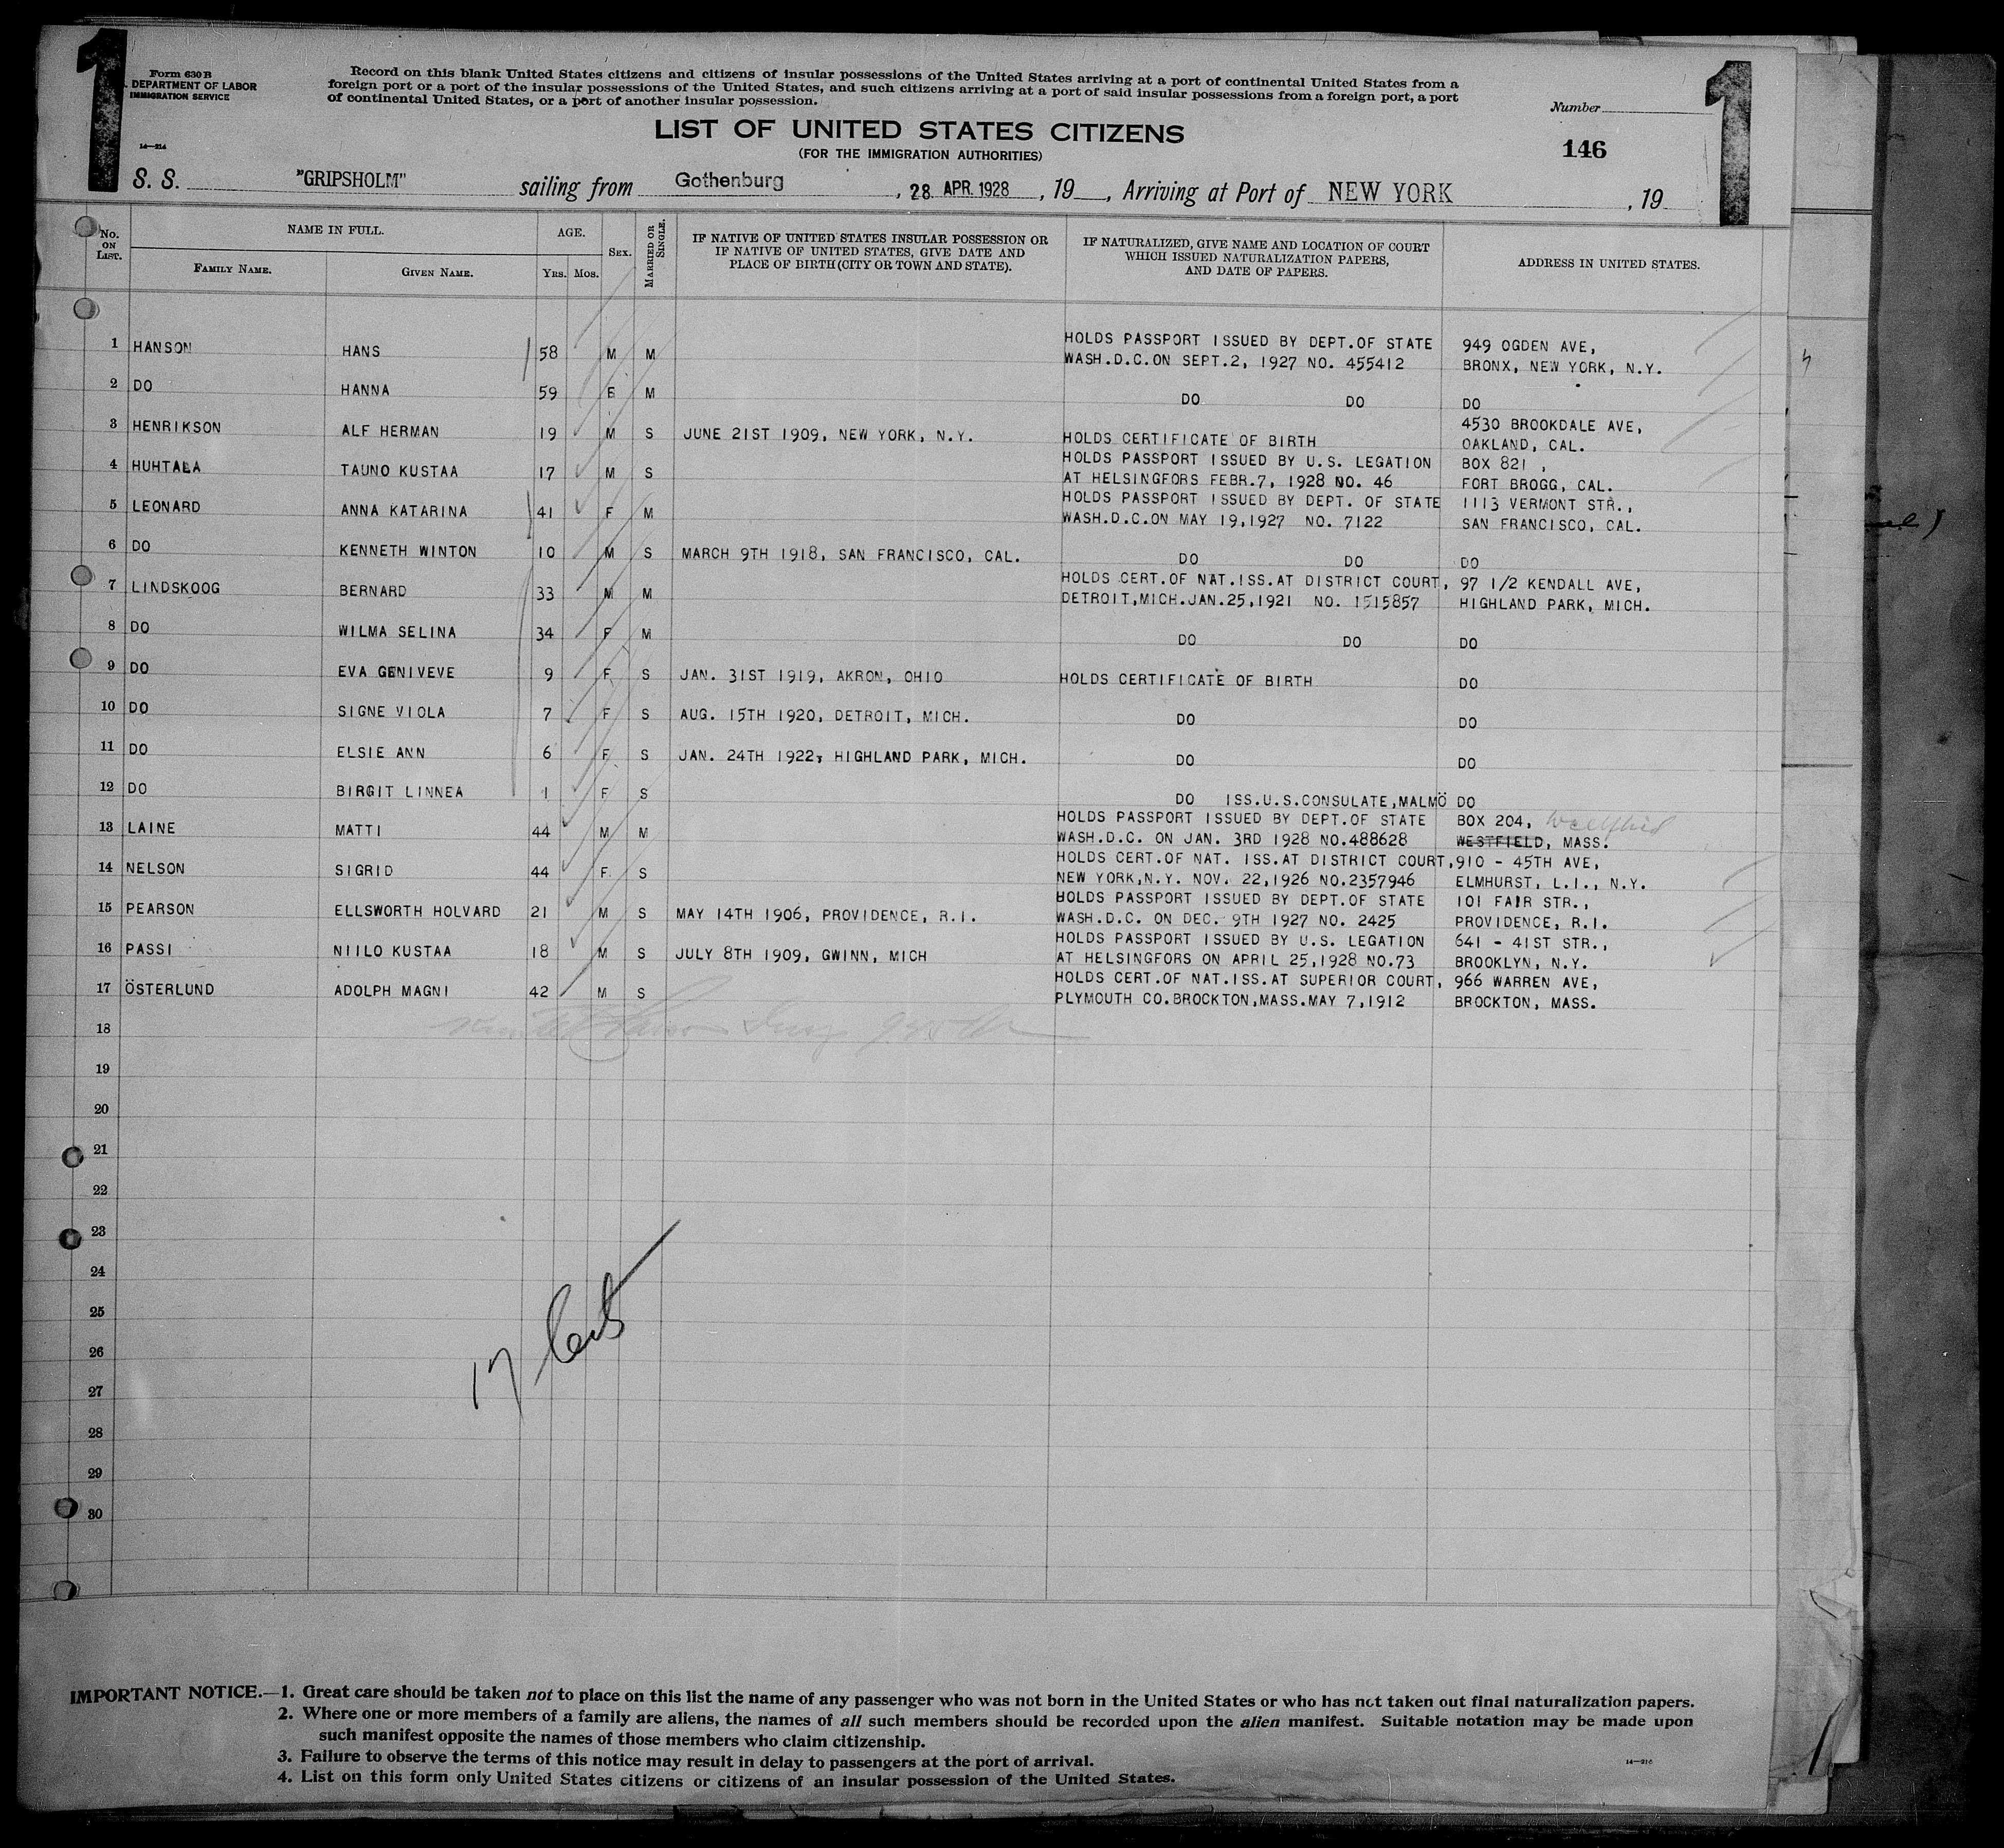 1
1
Form 630 B
DEPARTMENT OF LABOR
IMMIGRATION SERVICE
14—214
Record on this blank United States citizens and citizens of insular possessions of the United States arriving at a port of continental United States from a
foreign port or a port of the insular possessions of the United States, and such citizens arriving at a port of said insular possessions from a foreign port, a port
of continental United States, or a port of another insular possession.
Number
LIST OF UNITED STATES CITIZENS
(FOR THE IMMIGRATION AUTHORITIES)
146
S. S. "GRIPSHOLM" sailing from Gothenburg, 28 APR. 1928, 19, Arriving at Port of NEW YORK, 19
No. ON LIST. NAME IN FULL. FAMILY NAME. GIVEN NAME. AGE. YRS. MOS. SEX. MARRIED OR SINGLE. IF NATIVE OF UNITED STATES INSULAR POSSESSION OR IF NATIVE OF UNITED STATES, GIVE DATE AND PLACE OF BIRTH (CITY OR TOWN AND STATE). IF NATURALIZED, GIVE NAME AND LOCATION OF COURT WHICH ISSUED NATURALIZATION PAPERS, AND DATE OF PAPERS. ADDRESS IN UNITED STATES.
1 HANSON HANS 58 M M HOLDS PASSPORT ISSUED BY DEPT.OF STATE 949 OGDEN AVE,
WASH.D.C.ON SEPT.2, 1927 NO. 455412 BRONX, NEW YORK, N.Y.
2 DO HANNA 59 F M DO DO DO
3 HENRIKSON ALF HERMAN 19 M S JUNE 21ST 1909, NEW YORK, N.Y. 4530 BROOKDALE AVE,
HOLDS CERTIFICATE OF BIRTH OAKLAND, CAL.
4 HUHTALA TAUNO KUSTAA 17 M S HOLDS PASSPORT ISSUED BY U.S. LEGATION BOX 821 ,
AT HELSINGFORS FEBR.7, 1928 NO. 46 FORT BROGG, CAL.
5 LEONARD ANNA KATARINA 41 F M HOLDS PASSPORT ISSUED BY DEPT. OF STATE 1113 VERMONT STR.,
WASH.D.C.ON MAY 19,1927 NO. 7122 SAN FRANCISCO, CAL.
6 DO KENNETH WINTON 10 M S MARCH 9TH 1918, SAN FRANCISCO, CAL. DO DO DO
7 LINDSKOOG BERNARD 33 M M HOLDS CERT.OF NAT.ISS.AT DISTRICT COURT, 97 1/2 KENDALL AVE,
DETROIT,MICH.JAN.25,1921 NO. 1515857 HIGHLAND PARK, MICH.
8 DO WILMA SELINA 34 F M DO DO DO
9 DO EVA GENIVEVE 9 F S JAN. 31ST 1919, AKRON, OHIO HOLDS CERTIFICATE OF BIRTH DO
10 DO SIGNE VIOLA 7 F S AUG. 15TH 1920, DETROIT, MICH. DO DO
11 DO ELSIE ANN 6 F S JAN. 24TH 1922, HIGHLAND PARK, MICH. DO DO
12 DO BIRGIT LINNEA 1 F S DO ISS.U.S.CONSULATE,MALMÖ DO
13 LAINE MATTI 44 M M HOLDS PASSPORT ISSUED BY DEPT.OF STATE BOX 204,
WASH.D.C. ON JAN. 3RD 1928 NO.488628 WESTFIELD, MASS.
14 NELSON SIGRID 44 F S HOLDS CERT.OF NAT. ISS.AT DISTRICT COURT, 910 - 45TH AVE,
NEW YORK,N.Y. NOV. 22,1926 NO.2357946 ELMHURST, L.I., N.Y.
15 PEARSON ELLSWORTH HOLVARD 21 M S MAY 14TH 1906, PROVIDENCE, R.I. HOLDS PASSPORT ISSUED BY DEPT.OF STATE 101 FAIR STR.,
WASH.D.C. ON DEC. 9TH 1927 NO. 2425 PROVIDENCE, R.I.
16 PASSI NIILO KUSTAA 18 M S JULY 8TH 1909, GWINN, MICH HOLDS PASSPORT ISSUED BY U.S. LEGATION 641 - 41ST STR.,
AT HELSINGFORS ON APRIL 25,1928 NO.73 BROOKLYN, N.Y.
17 ÖSTERLUND ADOLPH MAGNI 42 M S HOLDS CERT.OF NAT.ISS.AT SUPERIOR COURT, 966 WARREN AVE,
PLYMOUTH CO.BROCKTON,MASS.MAY 7,1912 BROCKTON, MASS.
18
19
20
21
22
23
24
25
26
27
28
29
30
17
IMPORTANT NOTICE.—1. Great care should be taken not to place on this list the name of any passenger who was not born in the United States or who has not taken out final naturalization papers.
2. Where one or more members of a family are aliens, the names of all such members should be recorded upon the alien manifest. Suitable notation may be made upon
such manifest opposite the names of those members who claim citizenship.
3. Failure to observe the terms of this notice may result in delay to passengers at the port of arrival.
4. List on this form only United States citizens or citizens of an insular possession of the United States.